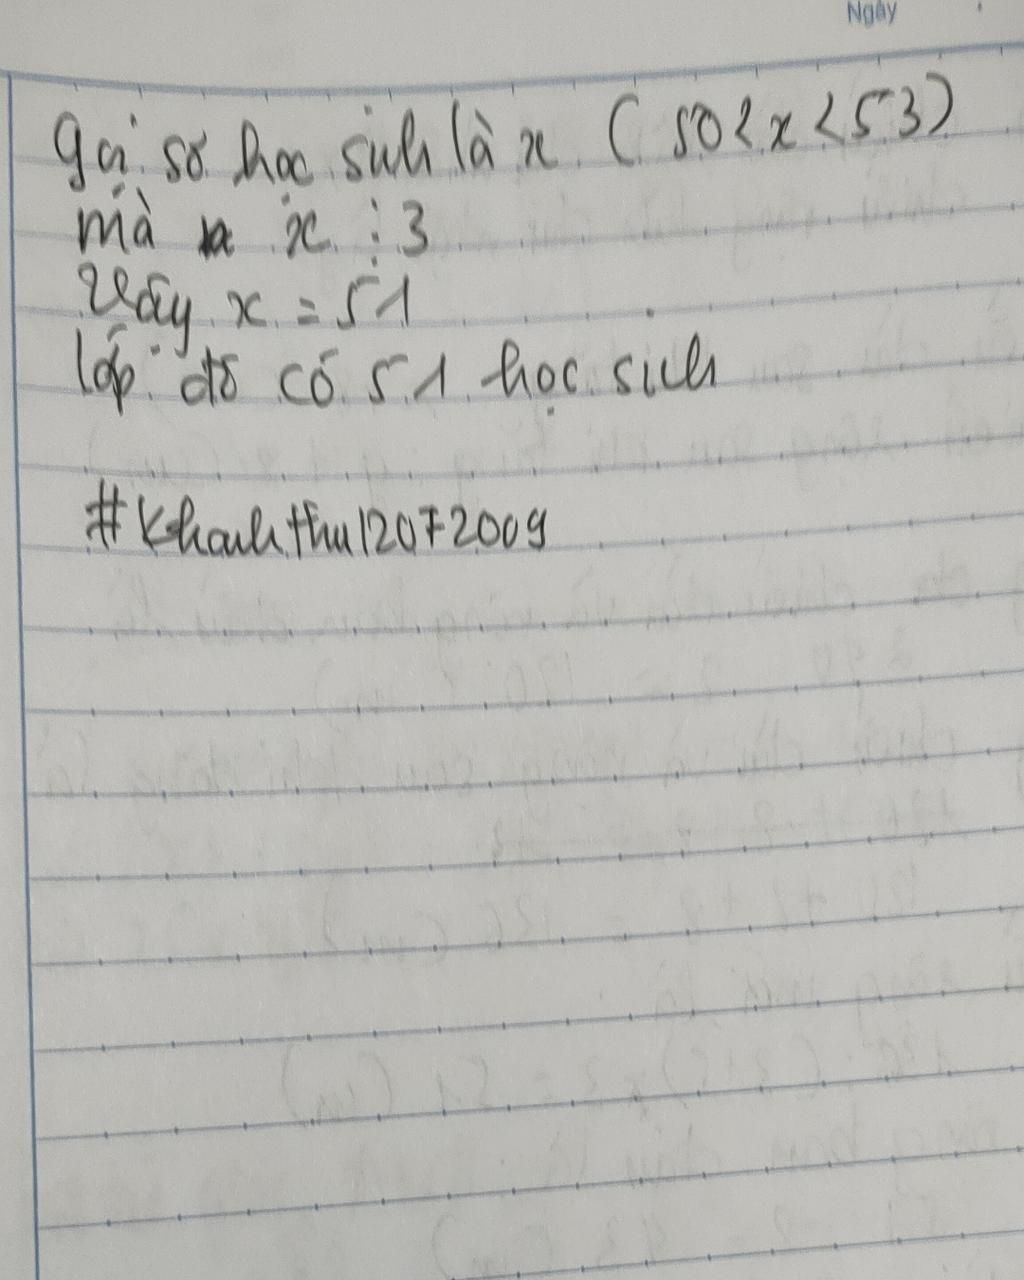 Ngày
gọi số học sinh là x (50 < x < 53)
mà x ⋮ 3
Vậy x = 51
lớp đó có 51 học sinh
#Khanhthu12072009